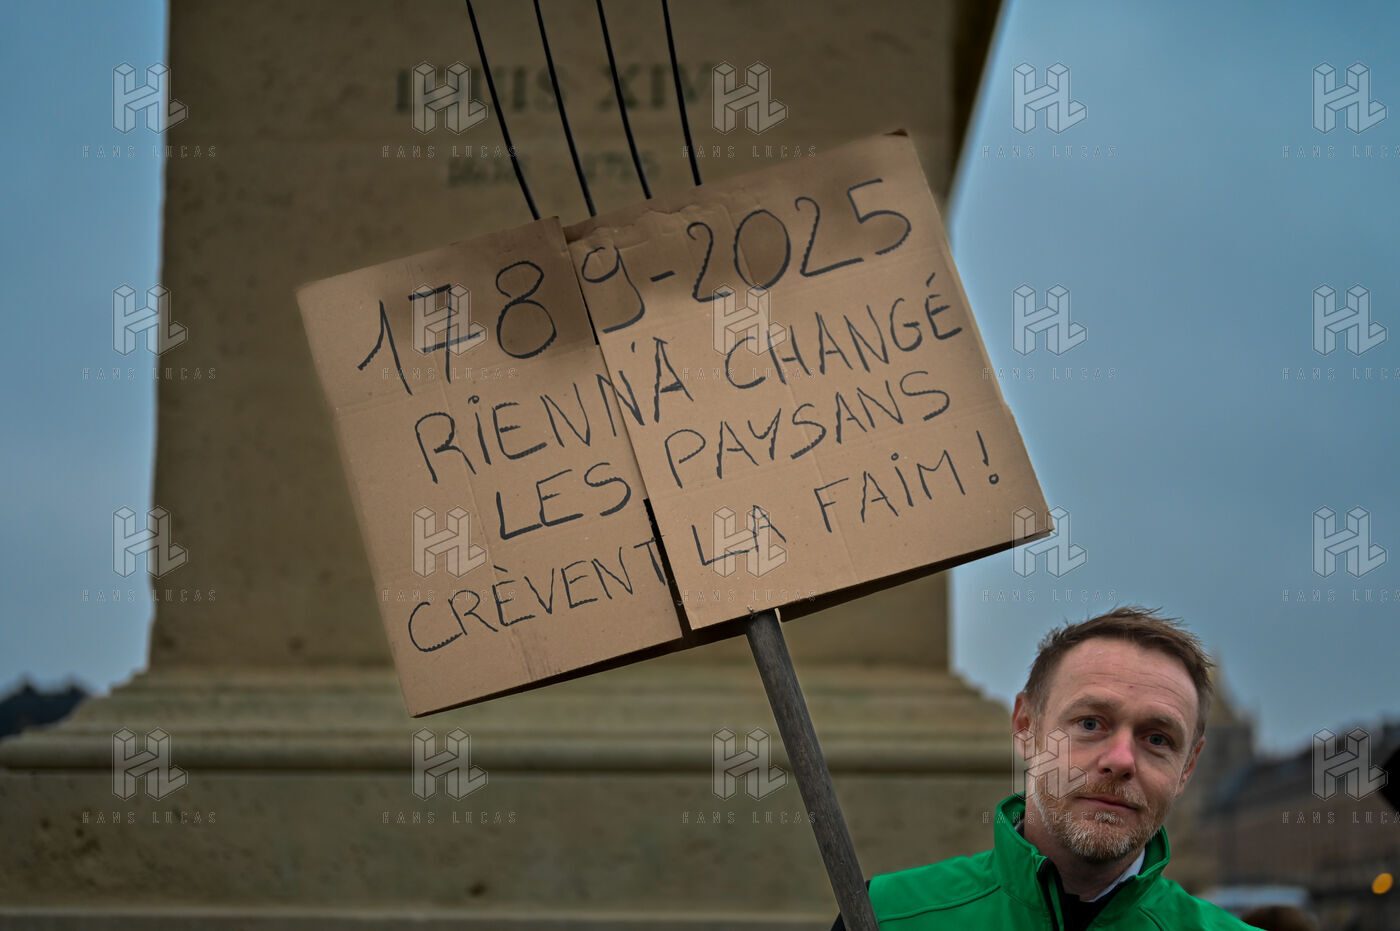 LOUIS XIV
1789-2025
RIEN N'A CHANGÉ
LES PAYSANS
CRÈVENT LA FAIM !
HL
HANS LUCAS